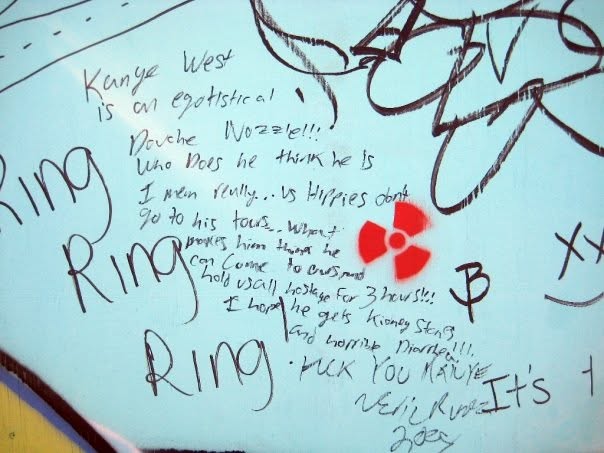 Kanye West
is an egotistical
Douche Nozzle!!!
Who Does he think he is
I mean really... us Hippies dont
go to his tours... What
makes him think he
can Come to ours and
hold us all hostage For 3 hours!!!
I hope he gets Kidney Stones
and horrible Diarrhea!!!
FUCK YOU KANYE
Ring
Ring
Ring
It's
XX